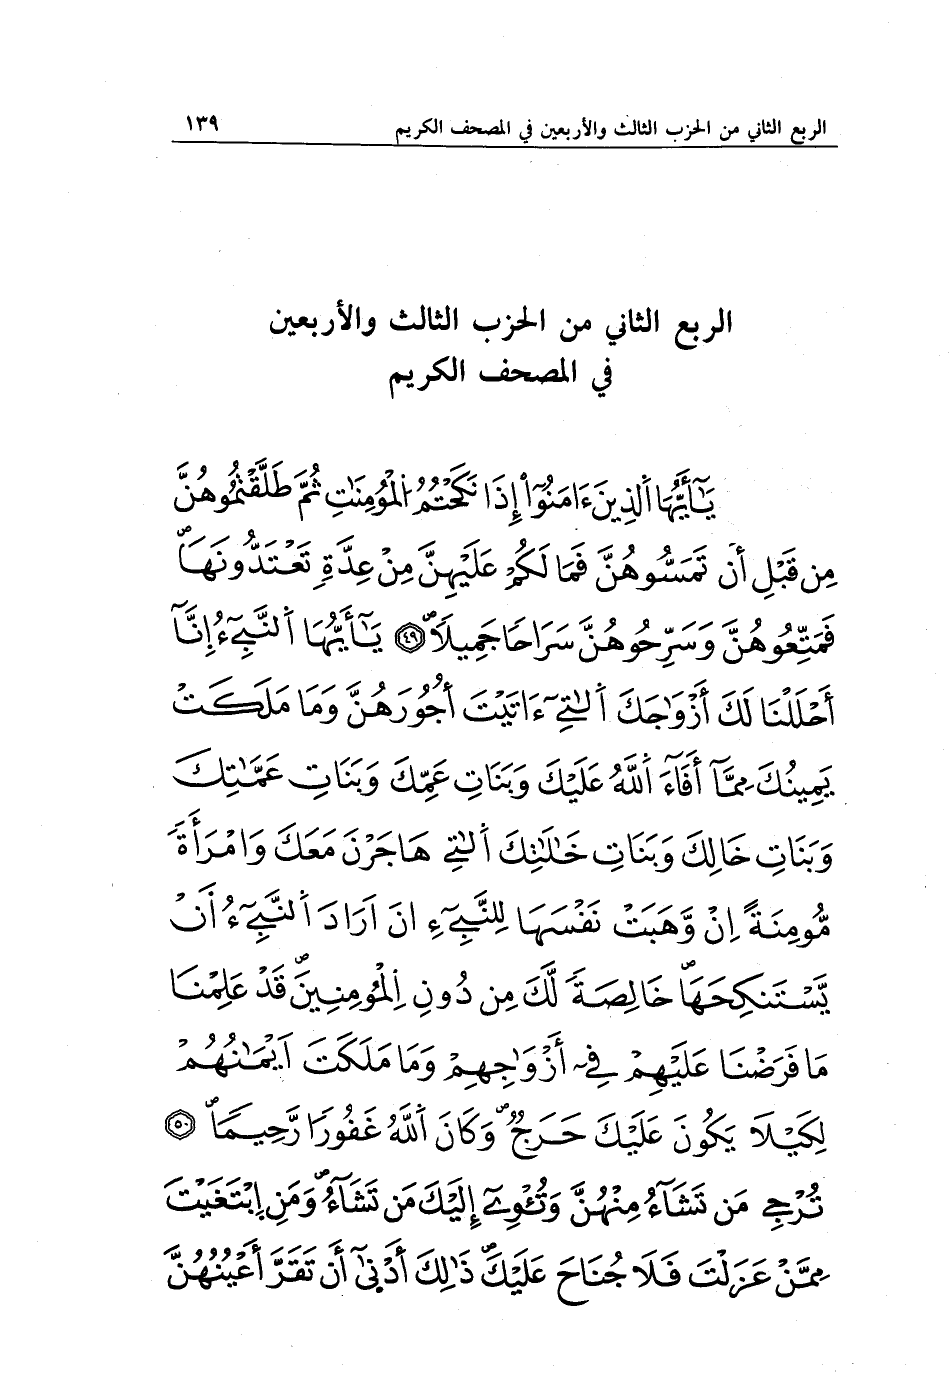 الربع الثاني من الحزب الثالث والأربعين في المصحف الكريم ١٣٩
الربع الثاني من الحزب الثالث والأربعين
في المصحف الكريم
يَٰٓأَيُّهَا اَ۬لذِينَ ءَامَنُوٓاْ إِذَا نَكَحْتُمُ اُ۬لْمُومِنَٰتِ ثُمَّ طَلَّقْتُمُوهُنَّ
مِن قَبْلِ أَن تَمَسُّوهُنَّ فَمَا لَكُمْ عَلَيْهِنَّ مِنْ عِدَّةٖ تَعْتَدُّونَهَاۖ
فَمَتِّعُوهُنَّ وَسَرِّحُوهُنَّ سَرَاحاٗ جَمِيلاٗۖ ٤٩ يَٰٓأَيُّهَا اَ۬لنَّبِيٓءُ إِنَّآ
أَحْلَلْنَا لَكَ أَزْوَٰجَكَ اَ۬لٰتِےٓ ءَاتَيْتَ أُجُورَهُنَّ وَمَا مَلَكَتْ
يَمِينُكَ مِمَّآ أَفَآءَ اَ۬للَّهُ عَلَيْكَ وَبَنَاتِ عَمِّكَ وَبَنَاتِ عَمَّٰتِكَ
وَبَنَاتِ خَالِكَ وَبَنَاتِ خَٰلَٰتِكَ اَ۬لٰتِے هَاجَرْنَ مَعَكَ وَامْرَأَةٗ
مُّومِنَةً اِنْ وَّهَبَتْ نَفْسَهَا لِلنَّبِيٓءِ انَ اَرَادَ اَ۬لنَّبِيٓءُ أَنْ
يَّسْتَنكِحَهَاۖ خَالِصَةٗ لَّكَ مِن دُونِ اِ۬لْمُومِنِينَۖ قَدْ عَلِمْنَا
مَا فَرَضْنَا عَلَيْهِمْ فِےٓ أَزْوَٰجِهِمْ وَمَا مَلَكَتَ اَيْمَٰنُهُمْ
لِكَيْلَا يَكُونَ عَلَيْكَ حَرَجٞۖ وَكَانَ اَ۬للَّهُ غَفُوراٗ رَّحِيماٗۖ ٥٠
تُرْجِے مَن تَشَآءُ مِنْهُنَّ وَتُـْٔوِےٓ إِلَيْكَ مَن تَشَآءُۖ وَمَنِ اِ۪بْتَغَيْتَ
مِمَّنْ عَزَلْتَ فَلَا جُنَاحَ عَلَيْكَۖ ذَٰلِكَ أَدْنَىٰٓ أَن تَقَرَّ أَعْيُنُهُنَّ